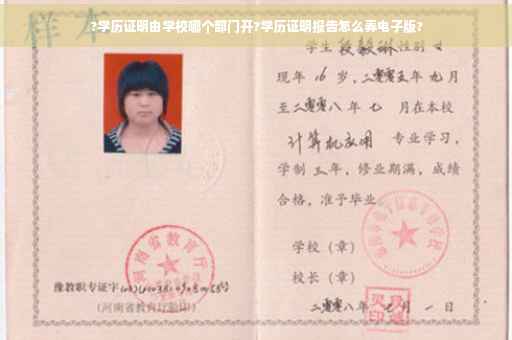 ?学历证明由学校哪个部门开?学历证明报告怎么弄电子版?
样本
学生 段毅琳 性别 女
现年 16 岁，二零零五年 九月
至二零零八年 七 月在本校
计算机应用 专业学习，
学制 三年，修业期满，成绩
合格，准予毕业
学校（章）
校长（章）
二零零八年 七月 一 日
河南省教育厅
豫教职专证字
（河南省教育厅验印）